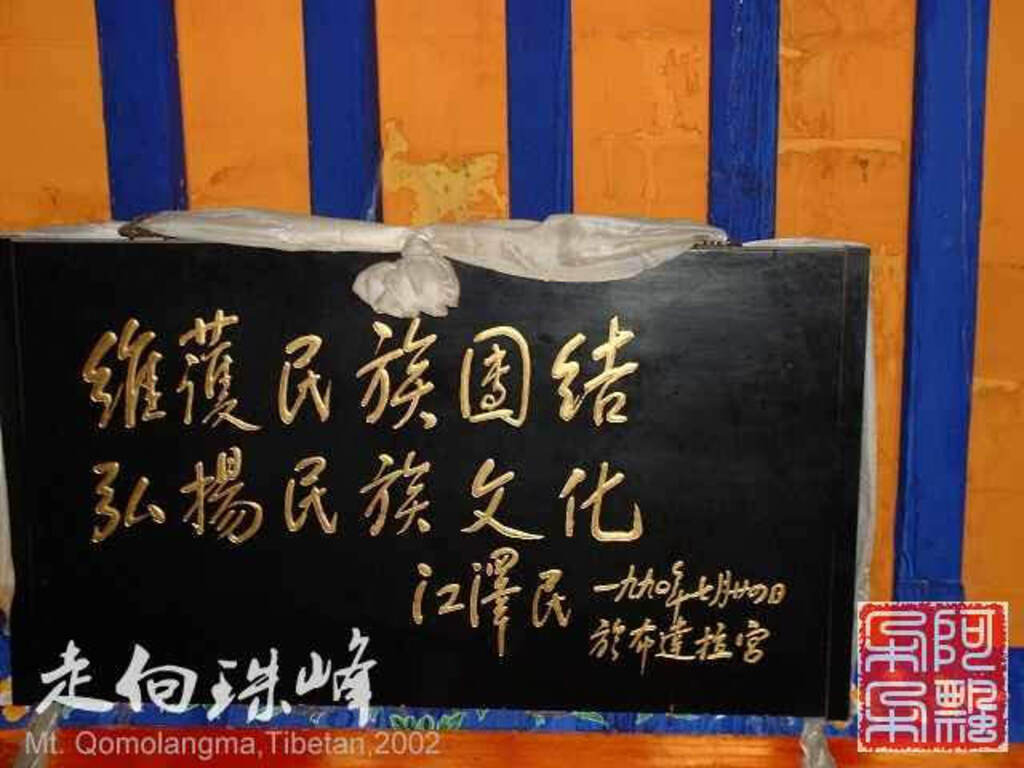 維護民族團结
弘揚民族文化
江澤民
一九九〇年七月廿四日
於布達拉宮
走向珠峰
Mt. Qomolangma,Tibetan,2002